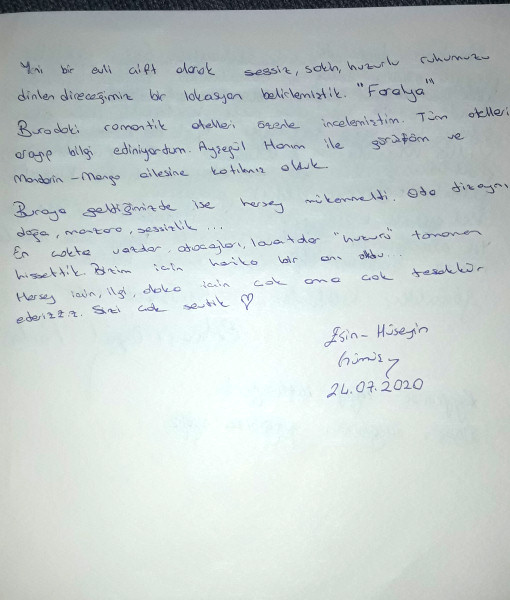 Yeni bir evli çift olarak sessiz, sakin, huzurlu ruhumuzu
dinlendireceğimiz bir lokasyon belirlemiştik. "Faralya"
Buradaki romantik otelleri özenle incelemiştim. Tüm otelleri
arayıp bilgi ediniyordum. Ayşegül Hanım ile görüştüm ve
Mandarin-Mango ailesine katılmış olduk
Buraya geldiğimizde ise herşey mükemmeldi. Oda dizaynı
doğa, manzara, sessizlik ...
En çokta
hissettik. Bizim için harika bir anı oldu...
Herşey için, ilgi, alaka için çok ama çok teşekkür
ederizzz. Sizi çok sevdik ♡
Esin - Hüseyin
Gümüş
24.07.2020